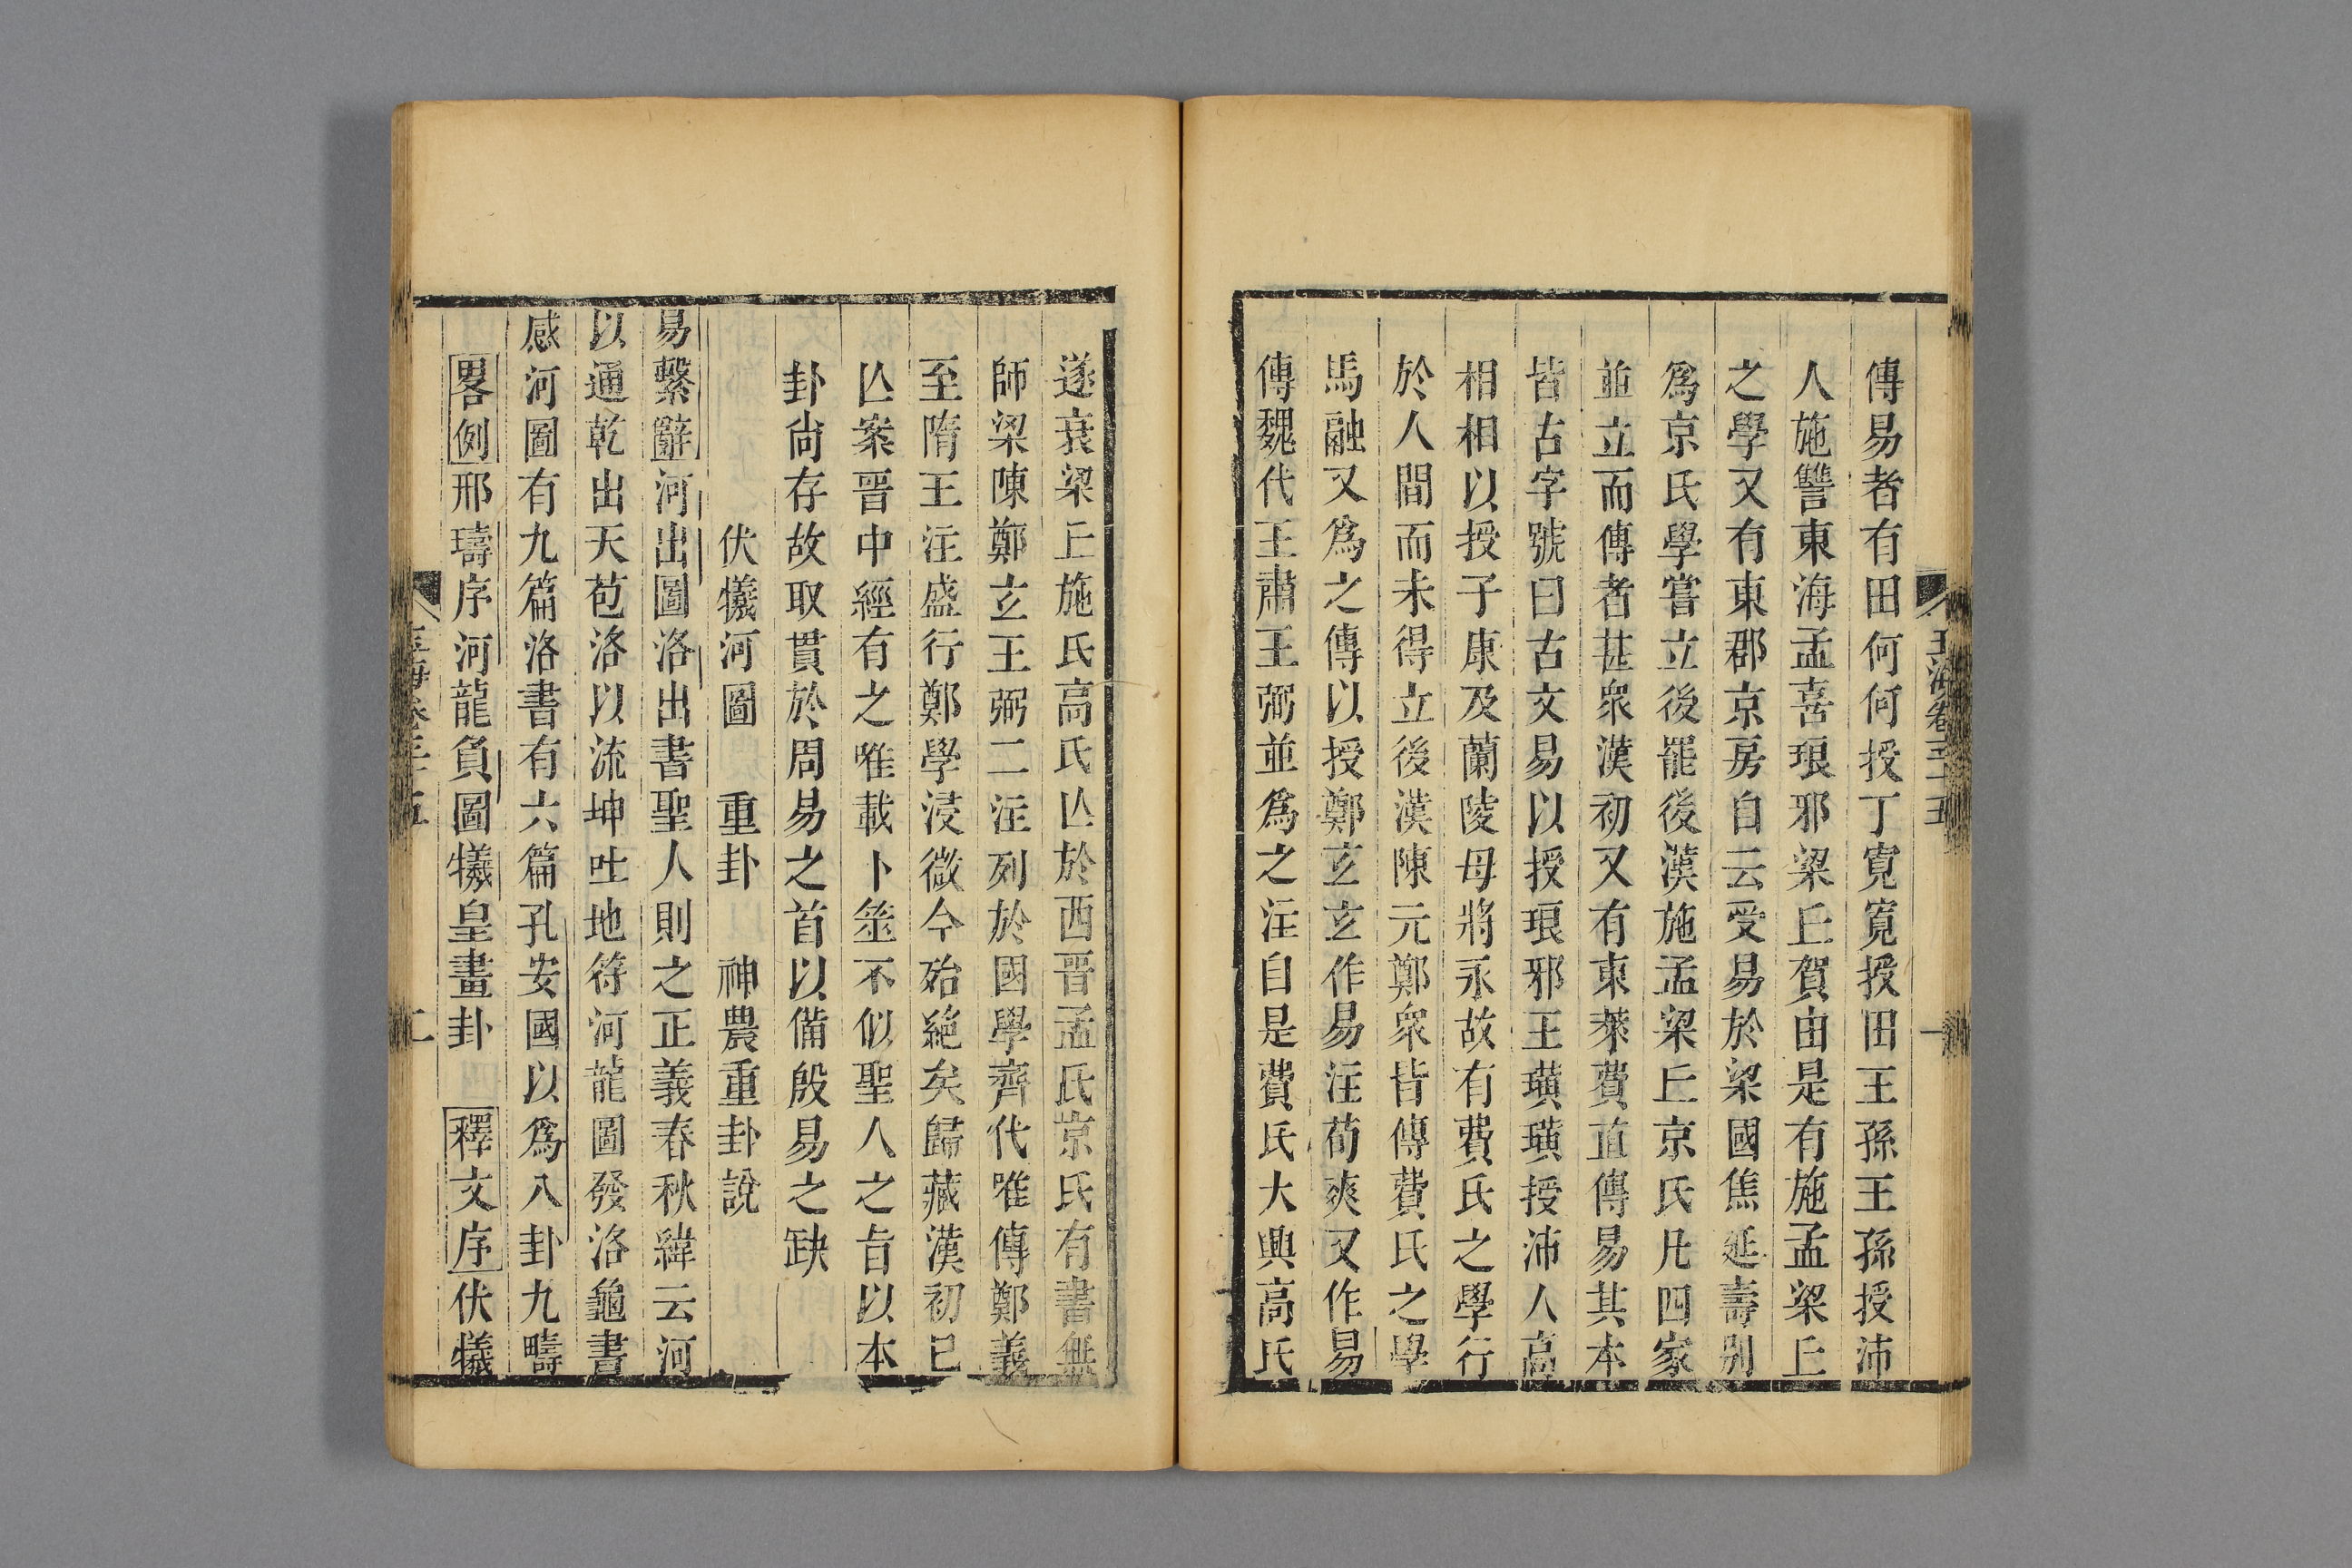 玉海卷三十五
一
傳易者有田何何授丁寬寬授田王孫王孫授沛
人施讐東海孟喜琅邪梁丘賀由是有施孟梁丘
之學又有東郡京房自云受易於梁國焦延壽別
爲京氏學嘗立後罷後漢施孟梁丘京氏凡四家
並立而傳者甚衆漢初又有東萊費直傳易其本
皆古字號曰古文易以授琅邪王璜璜授沛人高
相相以授子康及蘭陵母將永故有費氏之學行
於人間而未得立後漢陳元鄭衆皆傳費氏之學
馬融又爲之傳以授鄭玄玄作易注荀爽又作易
傳魏代王肅王弼並爲之注自是費氏大興高氏
遂衰梁丘施氏高氏亾於西晉孟氏京氏有書無
師梁陳鄭玄王弼二注列於國學齊代唯傳鄭義
至隋王注盛行鄭學浸微今殆絶矣歸藏漢初已
亾案晉中經有之唯載卜筮不似聖人之旨以本
卦尙存故取貫於周易之首以備殷易之缺
伏犧河圖　重卦　神農重卦說
易繫辭河出圖洛出書聖人則之正義春秋緯云河
以通乾出天苞洛以流坤吐地符河龍圖發洛龜書
感河圖有九篇洛書有六篇孔安國以爲八卦九疇
畧例邢璹序河龍負圖犧皇畫卦　釋文序伏犧
玉海卷三十五
二